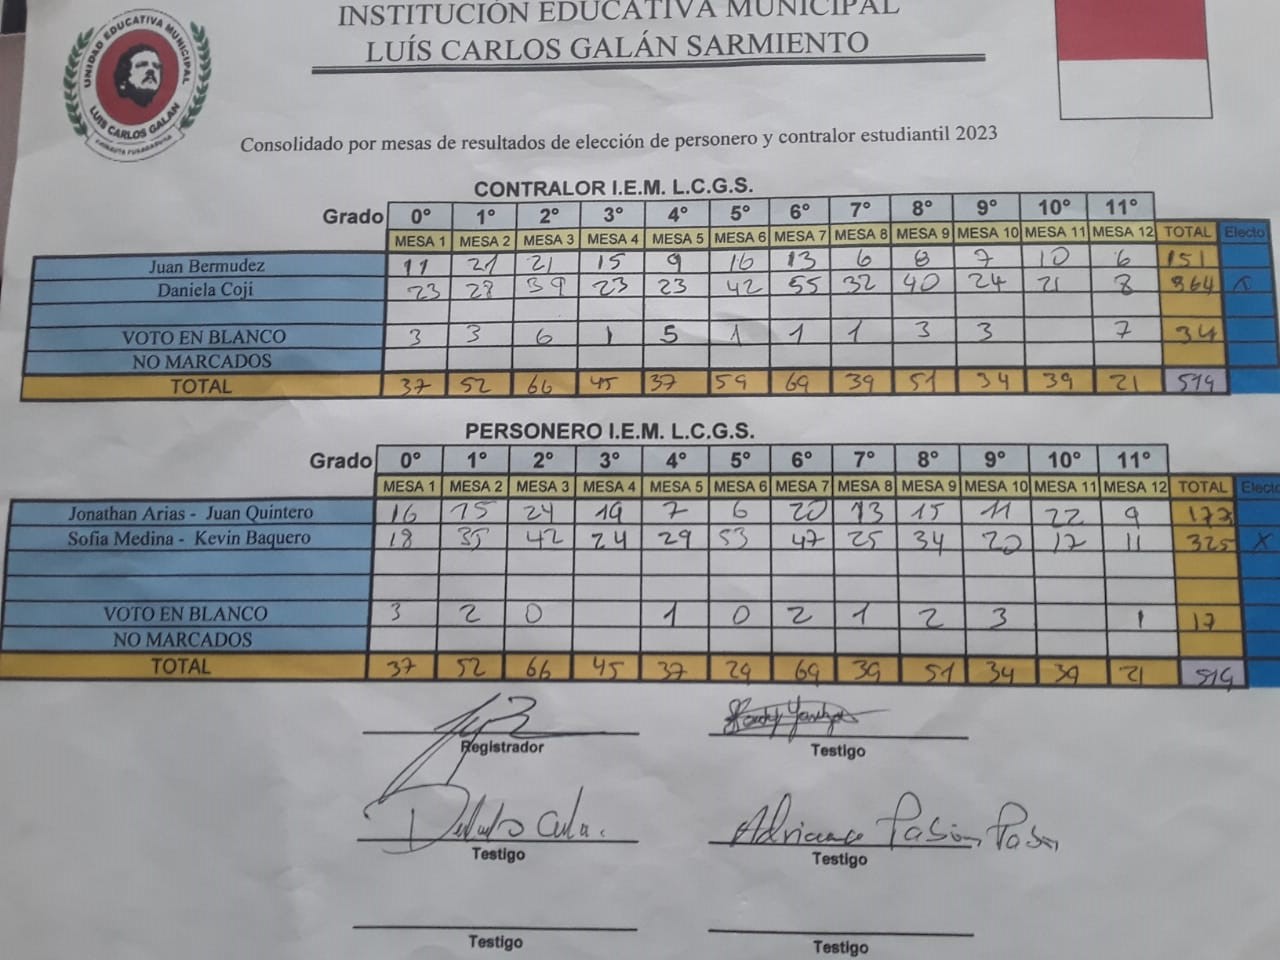 INSTITUCIÓN EDUCATIVA MUNICIPAL
LUÍS CARLOS GALÁN SARMIENTO
UNIDAD EDUCATIVA MUNICIPAL
LUIS CARLOS GALAN
Consolidado por mesas de resultados de elección de personero y contralor estudiantil 2023
CONTRALOR I.E.M. L.C.G.S.
Grado 0° 1° 2° 3° 4° 5° 6° 7° 8° 9° 10° 11°
MESA 1 MESA 2 MESA 3 MESA 4 MESA 5 MESA 6 MESA 7 MESA 8 MESA 9 MESA 10 MESA 11 MESA 12 TOTAL Electo
Juan Bermudez 11 21 21 15 9 16 13 6 8 7 10 6 151
Daniela Coji 23 28 39 23 23 42 55 32 40 24 21 8 364 X
VOTO EN BLANCO 3 3 6 1 5 1 1 1 3 3 7 34
NO MARCADOS
TOTAL 37 52 66 45 37 59 69 39 51 34 39 21 519
PERSONERO I.E.M. L.C.G.S.
Grado 0° 1° 2° 3° 4° 5° 6° 7° 8° 9° 10° 11°
MESA 1 MESA 2 MESA 3 MESA 4 MESA 5 MESA 6 MESA 7 MESA 8 MESA 9 MESA 10 MESA 11 MESA 12 TOTAL Electo
Jonathan Arias - Juan Quintero 16 15 24 19 7 6 20 13 15 11 22 9 177
Sofia Medina - Kevin Baquero 18 35 42 24 29 53 47 25 34 20 17 11 325 X
VOTO EN BLANCO 3 2 0 1 0 2 1 2 3 1 17
NO MARCADOS
TOTAL 37 52 66 45 37 29 69 39 51 34 39 21 519
Registrador Testigo
Adriana Pabón Pabón
Testigo Testigo
Testigo Testigo